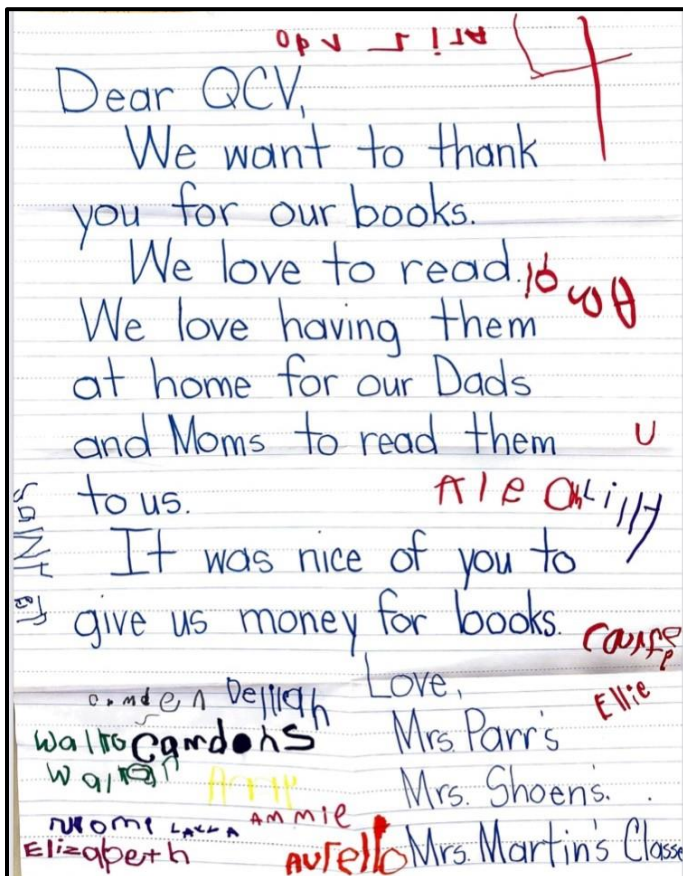 Dear QCV,
We want to thank
you for our books.
We love to read.
We love having them
at home for our Dads
and Moms to read them
to us.
It was nice of you to
give us money for books.
Love,
Mrs. Parr's
Mrs. Shoen's.
Mrs. Martin's Classe
Lilly
Ellie
Delilah
Camdens
Walto
Walton
AMMie
Elizabeth
Aurello